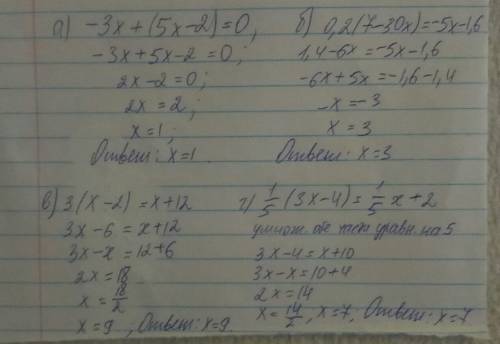 а) -3x+(5x-2)=0;
-3x+5x-2=0;
2x-2=0;
2x=2;
x=1;
Ответ: x=1.
б) 0,2(7-30x)=-5x-1,6
1,4-6x=-5x-1,6
-6x+5x=-1,6-1,4
-x=-3
x=3
Ответ: x=3
в) 3(x-2)=x+12
3x-6=x+12
3x-x=12+6
2x=18
x=18/2
x=9, Ответ: x=9
г) 1/5(3x-4)=1/5x+2
умнож. обе части уравн. на 5
3x-4=x+10
3x-x=10+4
2x=14
x=14/2, x=7, Ответ: x=7